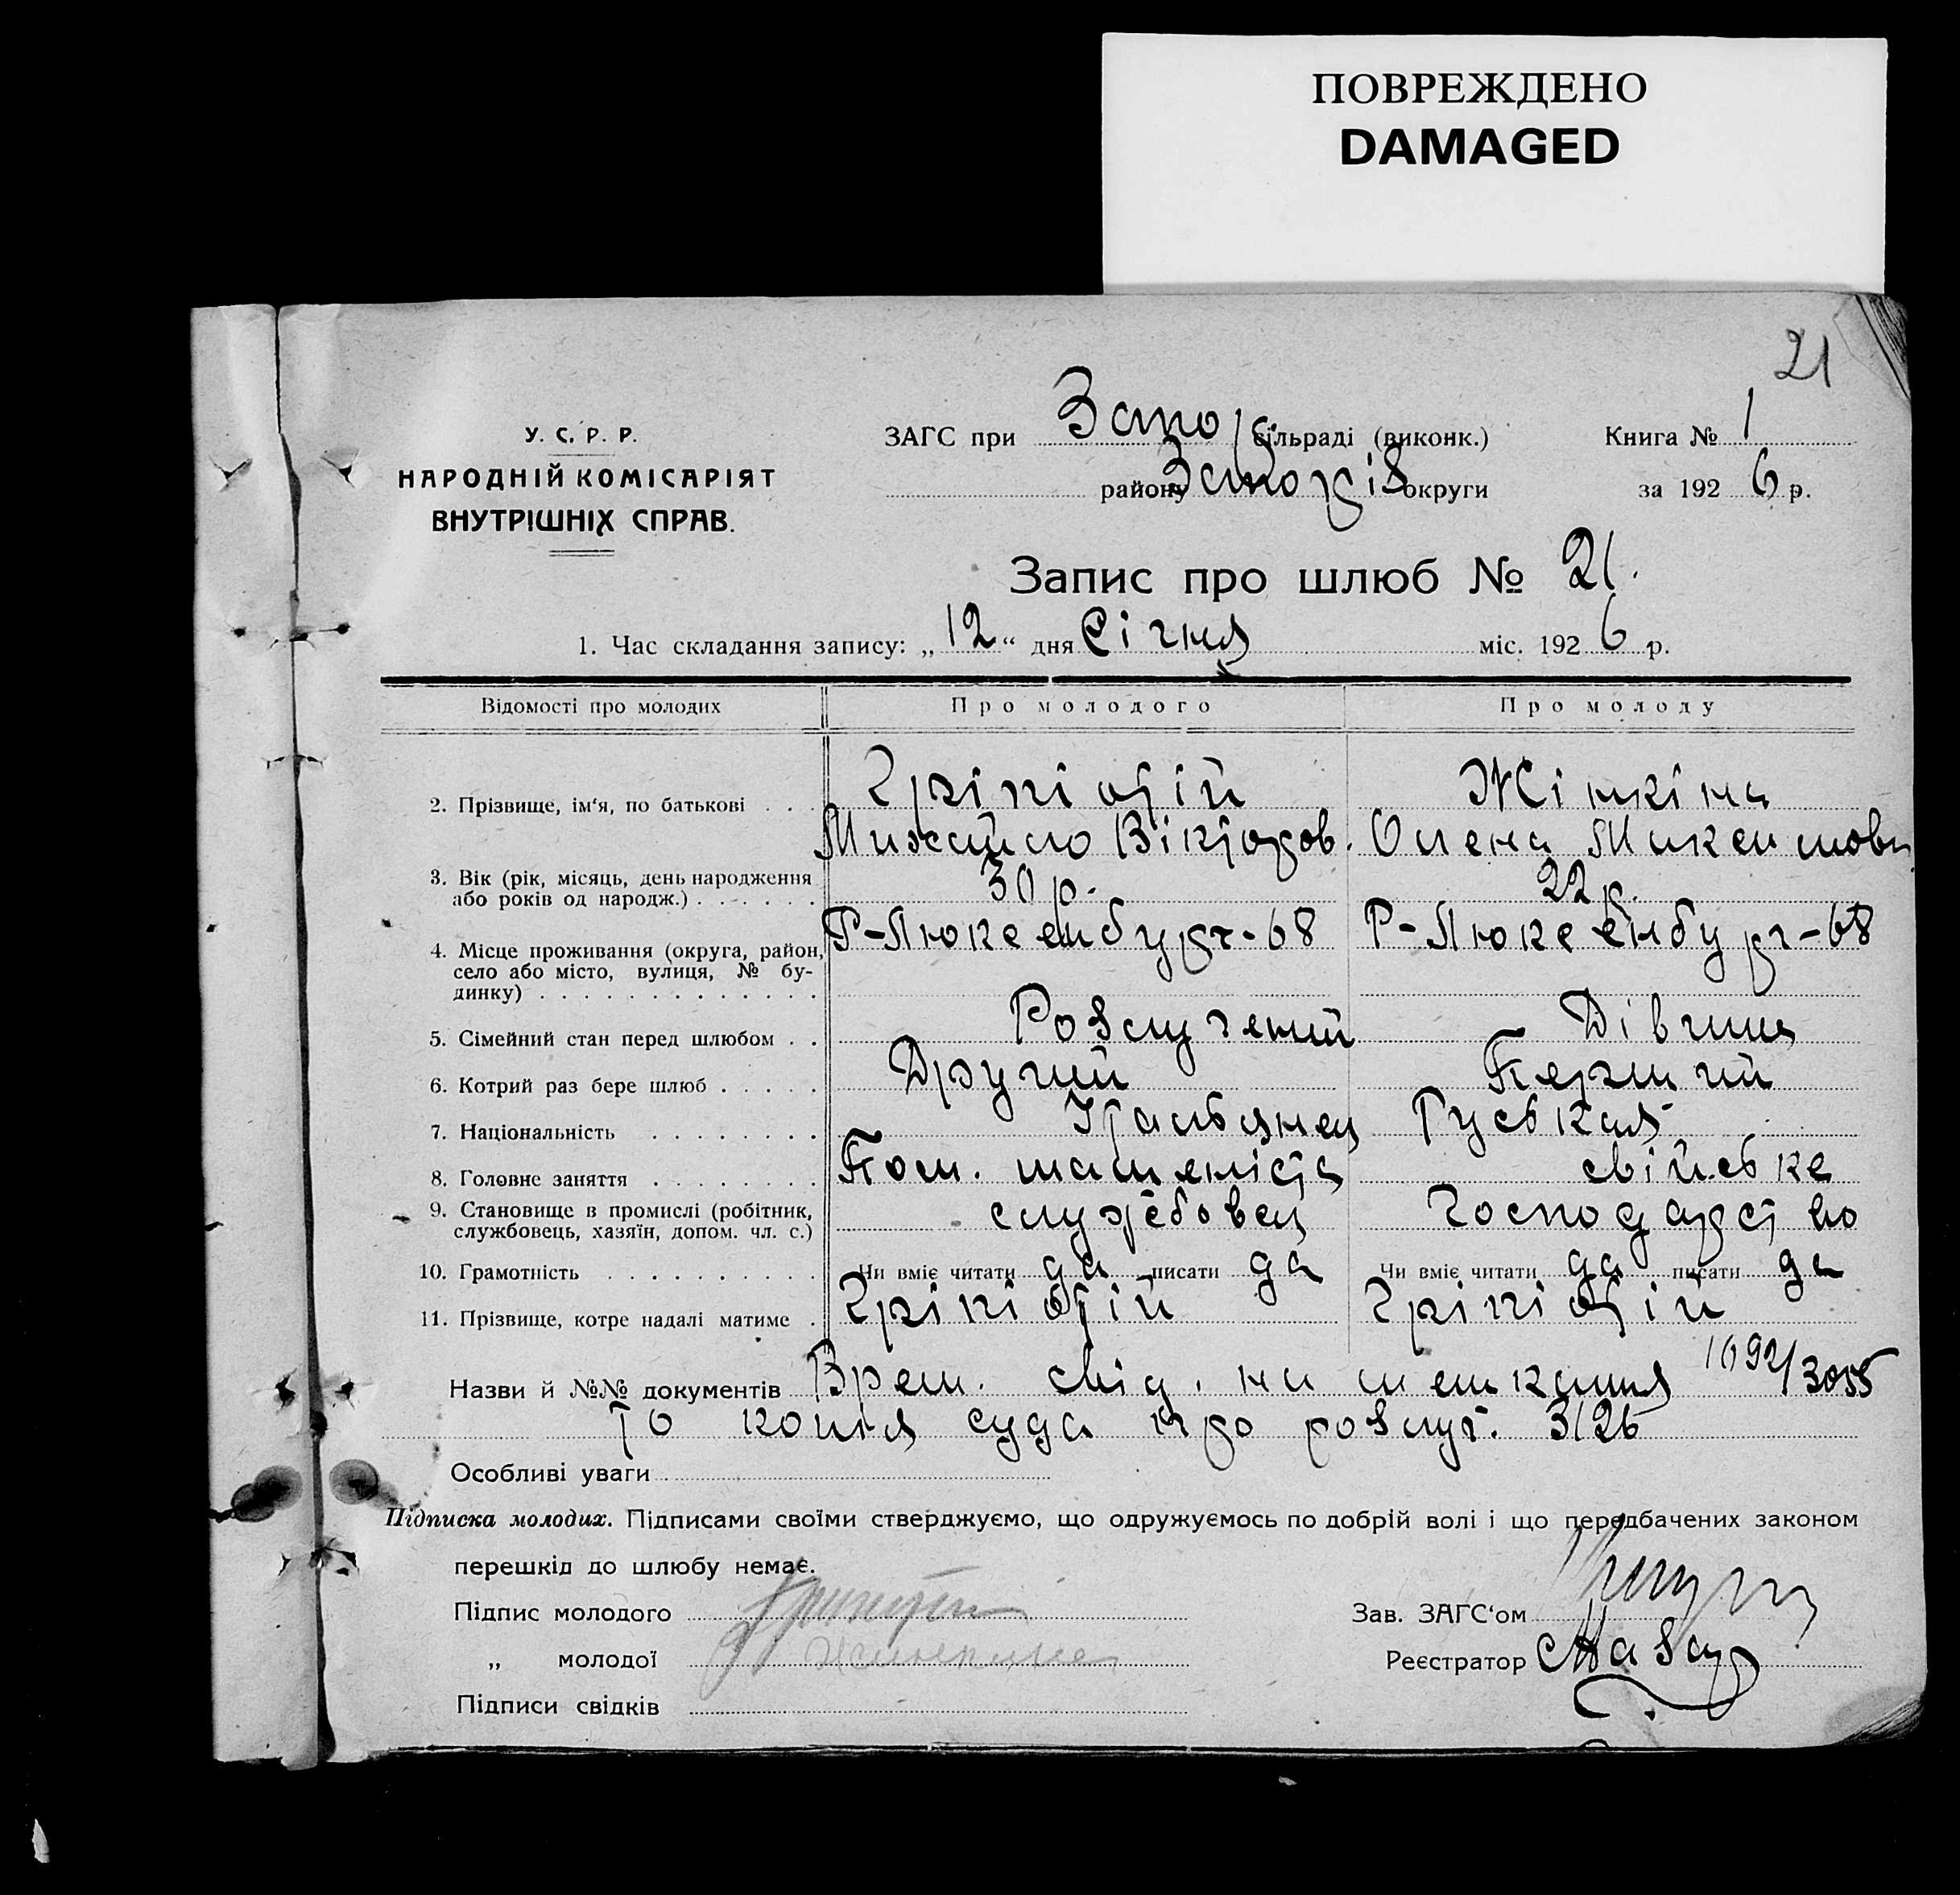 ПОВРЕЖДЕНО
DAMAGED
21
У. С. Р. Р.
НАРОДНІЙ КОМІСАРІЯТ
ВНУТРІШНІХ СПРАВ.
ЗАГС при Запор. сільраді (виконк.) Книга № 1
району Запоріз округи за 1926 р.
Запис про шлюб № 21.
1. Час складання запису: „12“ дня Січня міс. 1926 р.
Відомості про молодих Про молодого Про молоду
2. Прізвище, ім'я, по батькові . . . Жінкіна
Михайло Вікторов. Олена Максимовн
3. Вік (рік, місяць, день народження 30 р. 22 р.
або років од народж.) . . . . . .
Р-Люксембург-68 Р-Люксембург-68
4. Місце проживання (округа, район,
село або місто, вулиця, № бу-
динку) . . . . . . . . . . . . .
5. Сімейний стан перед шлюбом . . Розлучений Дівчина
6. Котрий раз бере шлюб . . . . . Другий Перший
7. Національність . . . . . . . . Італьянец Руськая
8. Головне заняття . . . . . . . . Пом. машиніста свійське
9. Становище в промислі (робітник, службовец господарство
службовець, хазяїн, допом. чл. с.)
10. Грамотність . . . . . . . . . . Чи вміє читати да писати да Чи вміє читати да писати да
11. Прізвище, котре надалі матиме .
Назви й №№ документів Врем. свід. на мешкання 1692/3055
то копія суда про розлуч. 3126
Особливі уваги
Підписка молодих. Підписами своїми стверджуємо, що одружуємось по добрій волі і що передбачених законом
перешкід до шлюбу немає.
Підпис молодого Зав. ЗАГС'ом
„ молодої Реєстратор
Підписи свідків